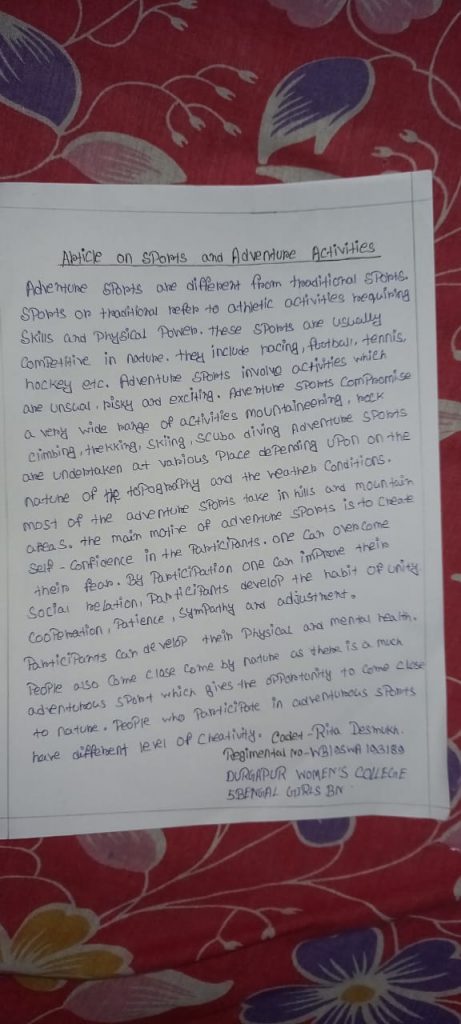 Article on Sports and Adventure Activities
Adventure Sports are different from traditional Sports.
Sports or traditional refer to athletic activities requiring
Skills and Physical Power. these Sports are usually
Competitive in nature. they include racing, football, tennis,
hockey etc. Adventure Sports involve activities which
are unsual, risky and exciting. Adventure Sports Compromise
a very wide range of activities mountaineering, rock
climbing, trekking, skiing, scuba diving Adventure Sports
are undertaken at various Place depending upon on the
nature of the topography and the weather Conditions.
most of the adventure sports take in hills and mountain
areas. the main motive of adventure sports is to Create
self - Confidence in the Participants. one Can over come
their fear. By Participation one Can improve their
Social relation, Participants develop the habit of unity
Cooperation, Patience, sympathy and adjustment.
Participants Can develop their Physical and mental health.
People also Come Close Come by nature as there is a much
adventurous sport which gives the opportunity to Come Close
to nature. People who Participate in adventurous sports
have different level of Creativity. Cadet - Rita Desmukh.
Regimental No-WB19SWA193189
DURGAPUR WOMEN'S COLLEGE
5BENGAL GIRLS BN